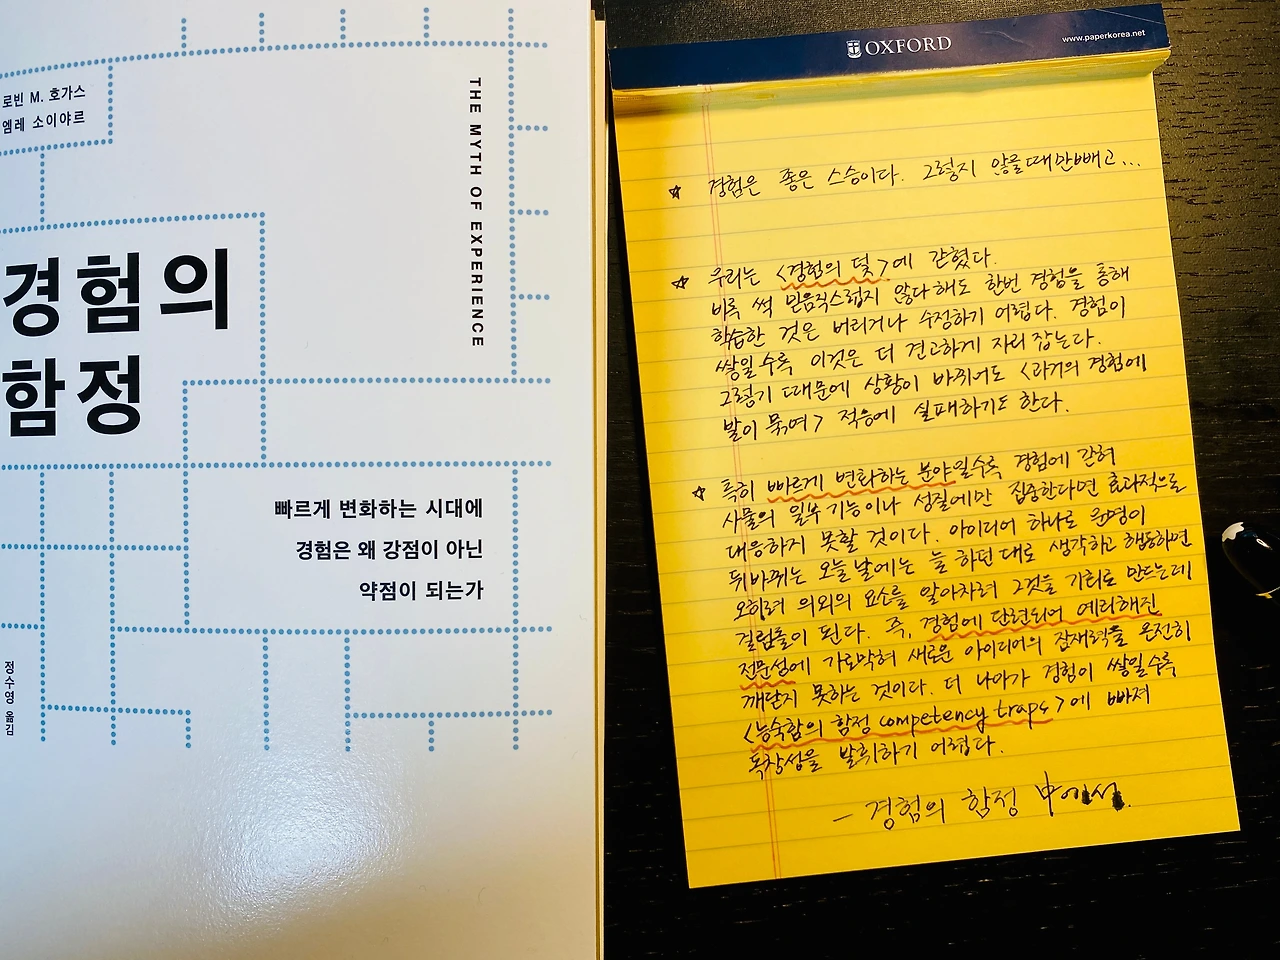 로빈 M. 호가스
엠레 소이야르
THE MYTH OF EXPERIENCE
경험의
함정
빠르게 변화하는 시대에
경험은 왜 강점이 아닌
약점이 되는가
정수영 옮김
OXFORD
www.paperkorea.net
☆ 경험은 좋은 스승이다. 그렇지 않을때만빼고...
☆ 우리는 <경험의 덫>에 갇혔다.
비록 썩 믿음직스럽지 않다해도 한번 경험을 통해
학습한 것은 버리거나 수정하기 어렵다. 경험이
쌓일수록 이것은 더 견고하게 자리잡는다.
그렇기 때문에 상황이 바뀌어도 <과거의 경험에
발이 묶여> 적응에 실패하기도 한다.
☆ 특히 빠르게 변화하는 분야일수록 경험에 갇혀
사물의 일부 기능이나 성질에만 집중한다면 효과적으로
대응하지 못할 것이다. 아이디어 하나로 운명이
뒤바뀌는 오늘날에는 늘 하던대로 생각하고 행동하면
오히려 의외의 요소를 알아차려 그것을 기회로 만드는데
걸림돌이 된다. 즉, 경험에 단련되어 예리해진
전문성에 가로막혀 새로운 아이디어의 잠재력을 온전히
깨닫지 못하는 것이다. 더 나아가 경험이 쌓일수록
<능숙함의 함정 competency traps>에 빠져
독창성을 발휘하기 어렵다.
– 경험의 함정 中에서.